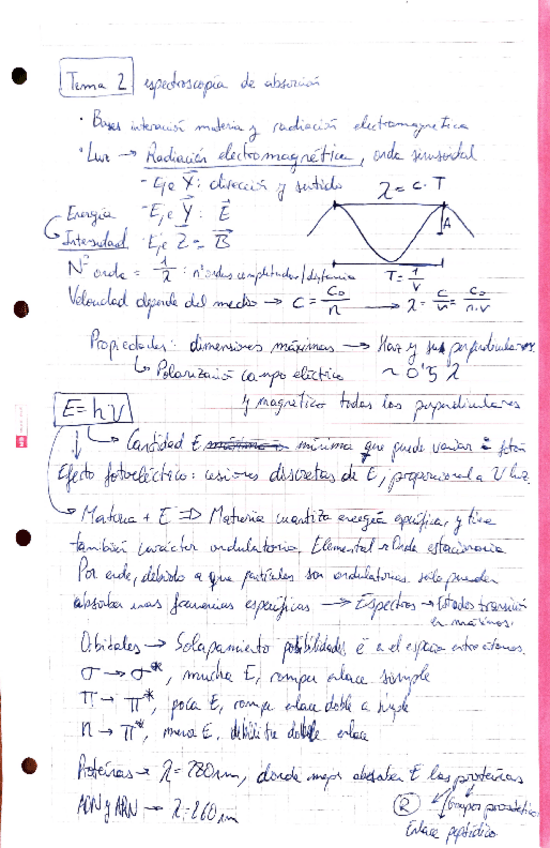 Tema 2 espectroscopía de absorción
· Bases interacción materia y radiación electromagnética
· Luz → Radiación electromagnética, onda sinusoidal
- Eje X: dirección y sentido
λ = c · T
Energía - Eje Y: E
Intensidad - Eje Z = B
A
Nº onda = 1/λ : nº ondas completadas/distancia
T = 1/ν
Velocidad depende del medio → c = c₀/n → λ = c/ν = c₀/n·ν
Propiedades: dimensiones máximas → Haz y sus perpendiculares
↳ Polarización campo eléctrico ~ 0'5 λ
y magnético todas las perpendiculares
E = hν
→ Cantidad E mínima que puede variar = fotón
Efecto fotoeléctrico: cesiones discretas de E, proporcional a ν luz.
→ Materia + E ⇒ Materia cuantiza energía específica, y tiene
también carácter ondulatorio. Elemental → Onda estacionaria
Por ende, debido a que partículas son ondulatorias solo pueden
absorber unas frecuencias específicas → Espectros → Estados transición
en máximos.
Orbitales → Solapamiento posibilidades ē en el espacio entre átomos.
σ → σ*, mucha E, romper enlace simple
π → π*, poca E, rompe enlace doble a simple
n → π*, menos E, debilita doble enlace
Proteínas → λ = 280 nm, donde mejor absorben E las proteínas
ADN y ARN → λ = 260 nm
R Grupos prostéticos
Enlace peptídico